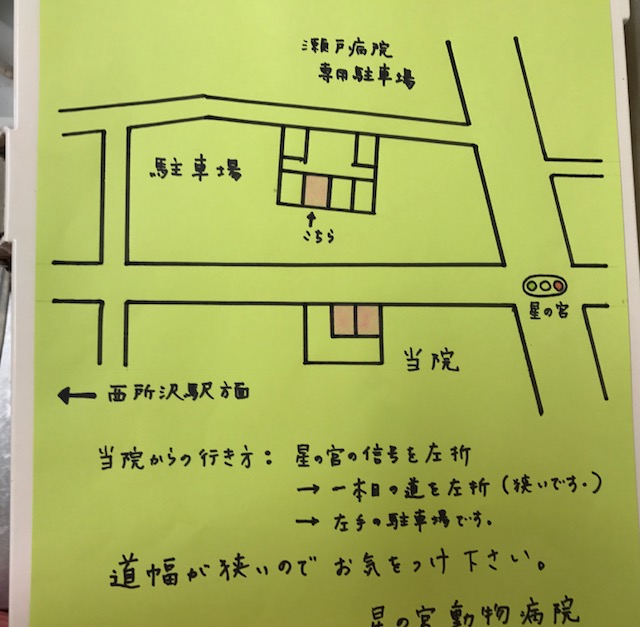 瀬戸病院
専用駐車場
駐車場
こちら
星の宮
当院
← 西所沢駅方面
当院からの行き方: 星の宮の信号を左折
→ 一本目の道を左折(狭いです。)
→ 左手の駐車場です。
道幅が狭いのでお気をつけ下さい。
星の宮動物病院